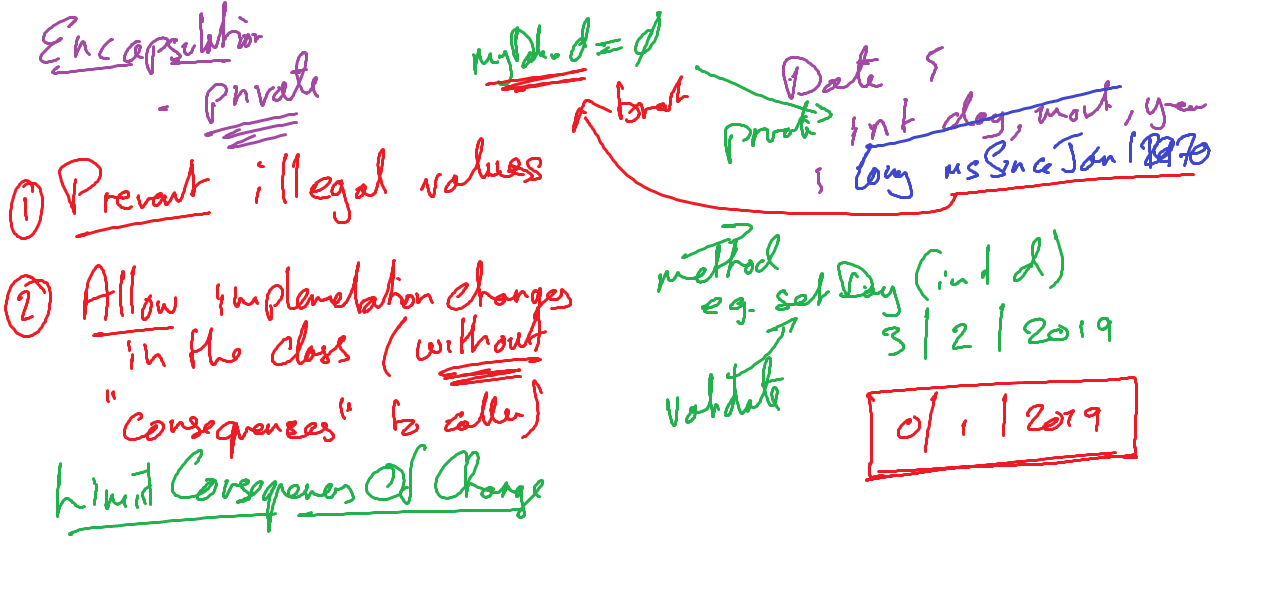 Encapsulation
- private
① Prevant illegal values
② Allow implemetation changes
in the class (without
"consequences" to caller)
Limit Consequences Of Change
= 0
Date {
private int day, mont, year
long msSinceJan 1 1970
}
method
eg. setDay (int d)
3 | 2 | 2019
validate
0 / 1 | 2019